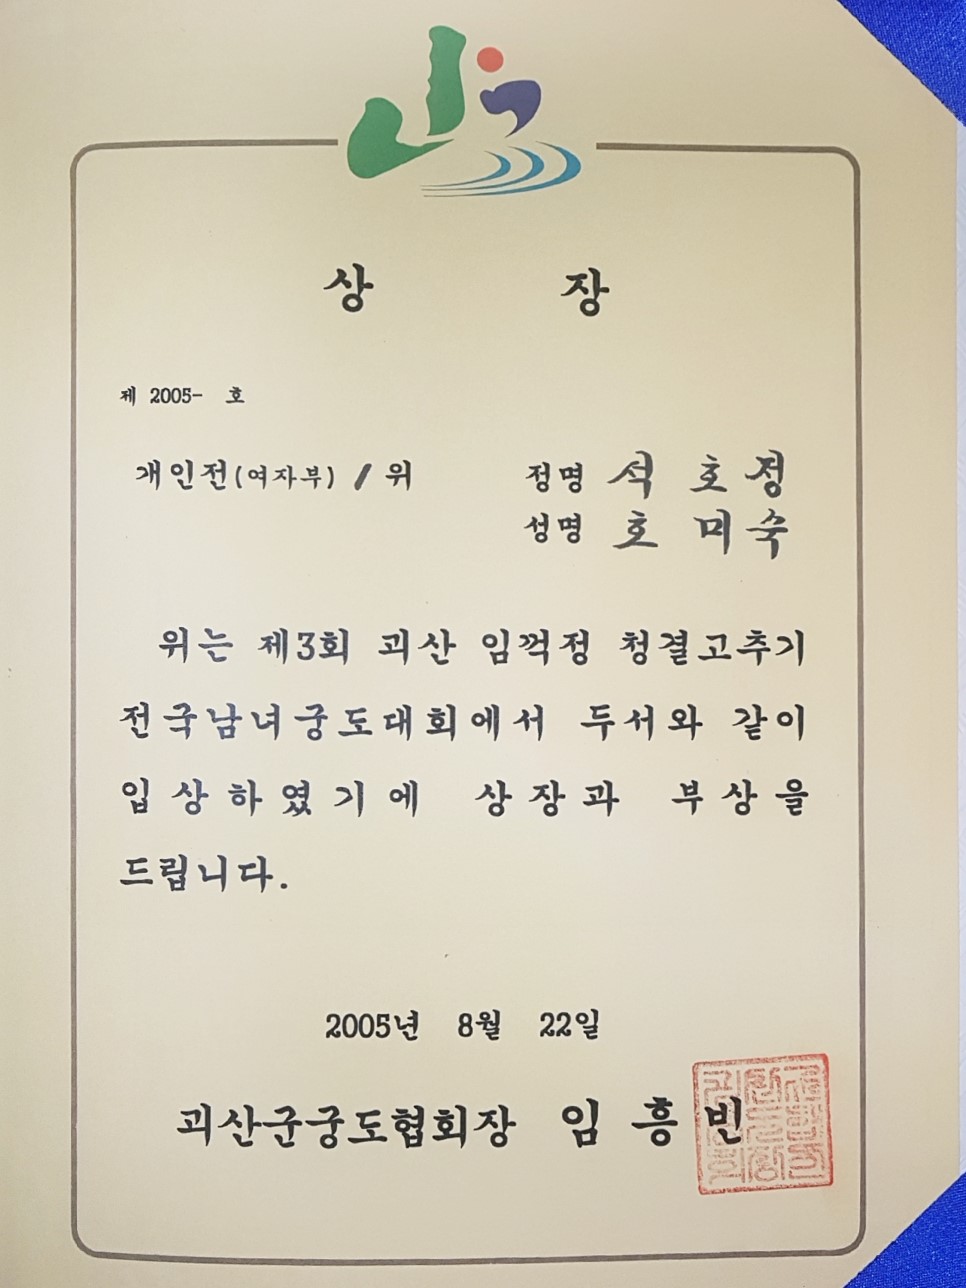 상 장
제 2005- 호
개인전(여자부) 1 위
정명 석 호 정
성명 호 미 숙
위는 제3회 괴산 임꺽정 청결고추기
전국남녀궁도대회에서 두서와 같이
입상하였기에 상장과 부상을
드립니다.
2005년 8월 22일
괴산군궁도협회장 임 흥 빈